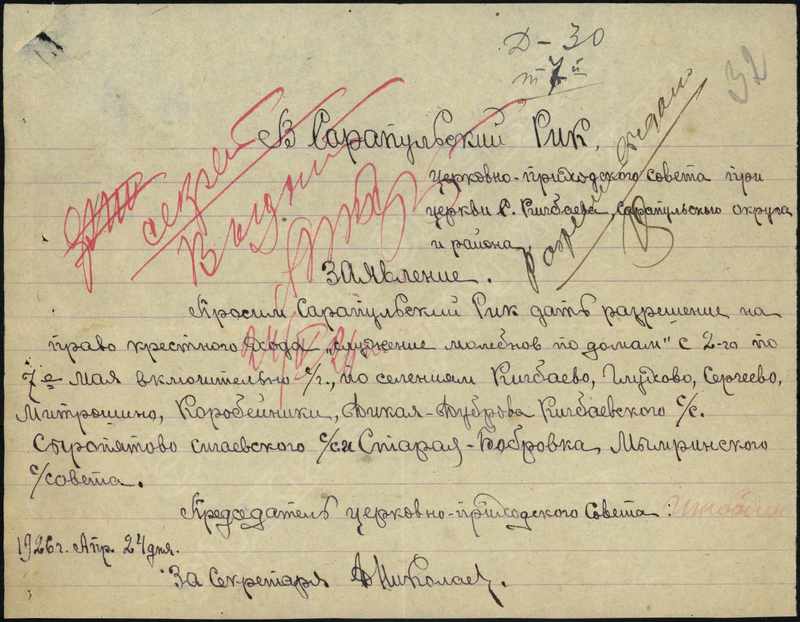 Д-30
32
В Сарапульский Рик.
Церковно-приходского совета при
церкви с. Кигбаева, Сарапульского округа
и района
Заявление.
секрет
Выдан
Просим Сарапульский Рик дать разрешение на
право крестного хода „служение молебнов по домам" с 2-го по
7-е мая включительно с/г., по селениям Кигбаево, Глухово, Сергеево,
Митрошино, Коробейники, Дикая-Дуброва Кигбаевского с/с.
Сыропятово сигаевского с/с и Старая-Бобровка, Мымринского
с/совета.
Председатель церковно-приходского Совета:
1926 г. Апр. 24 дня.
За Секретаря Николаев.